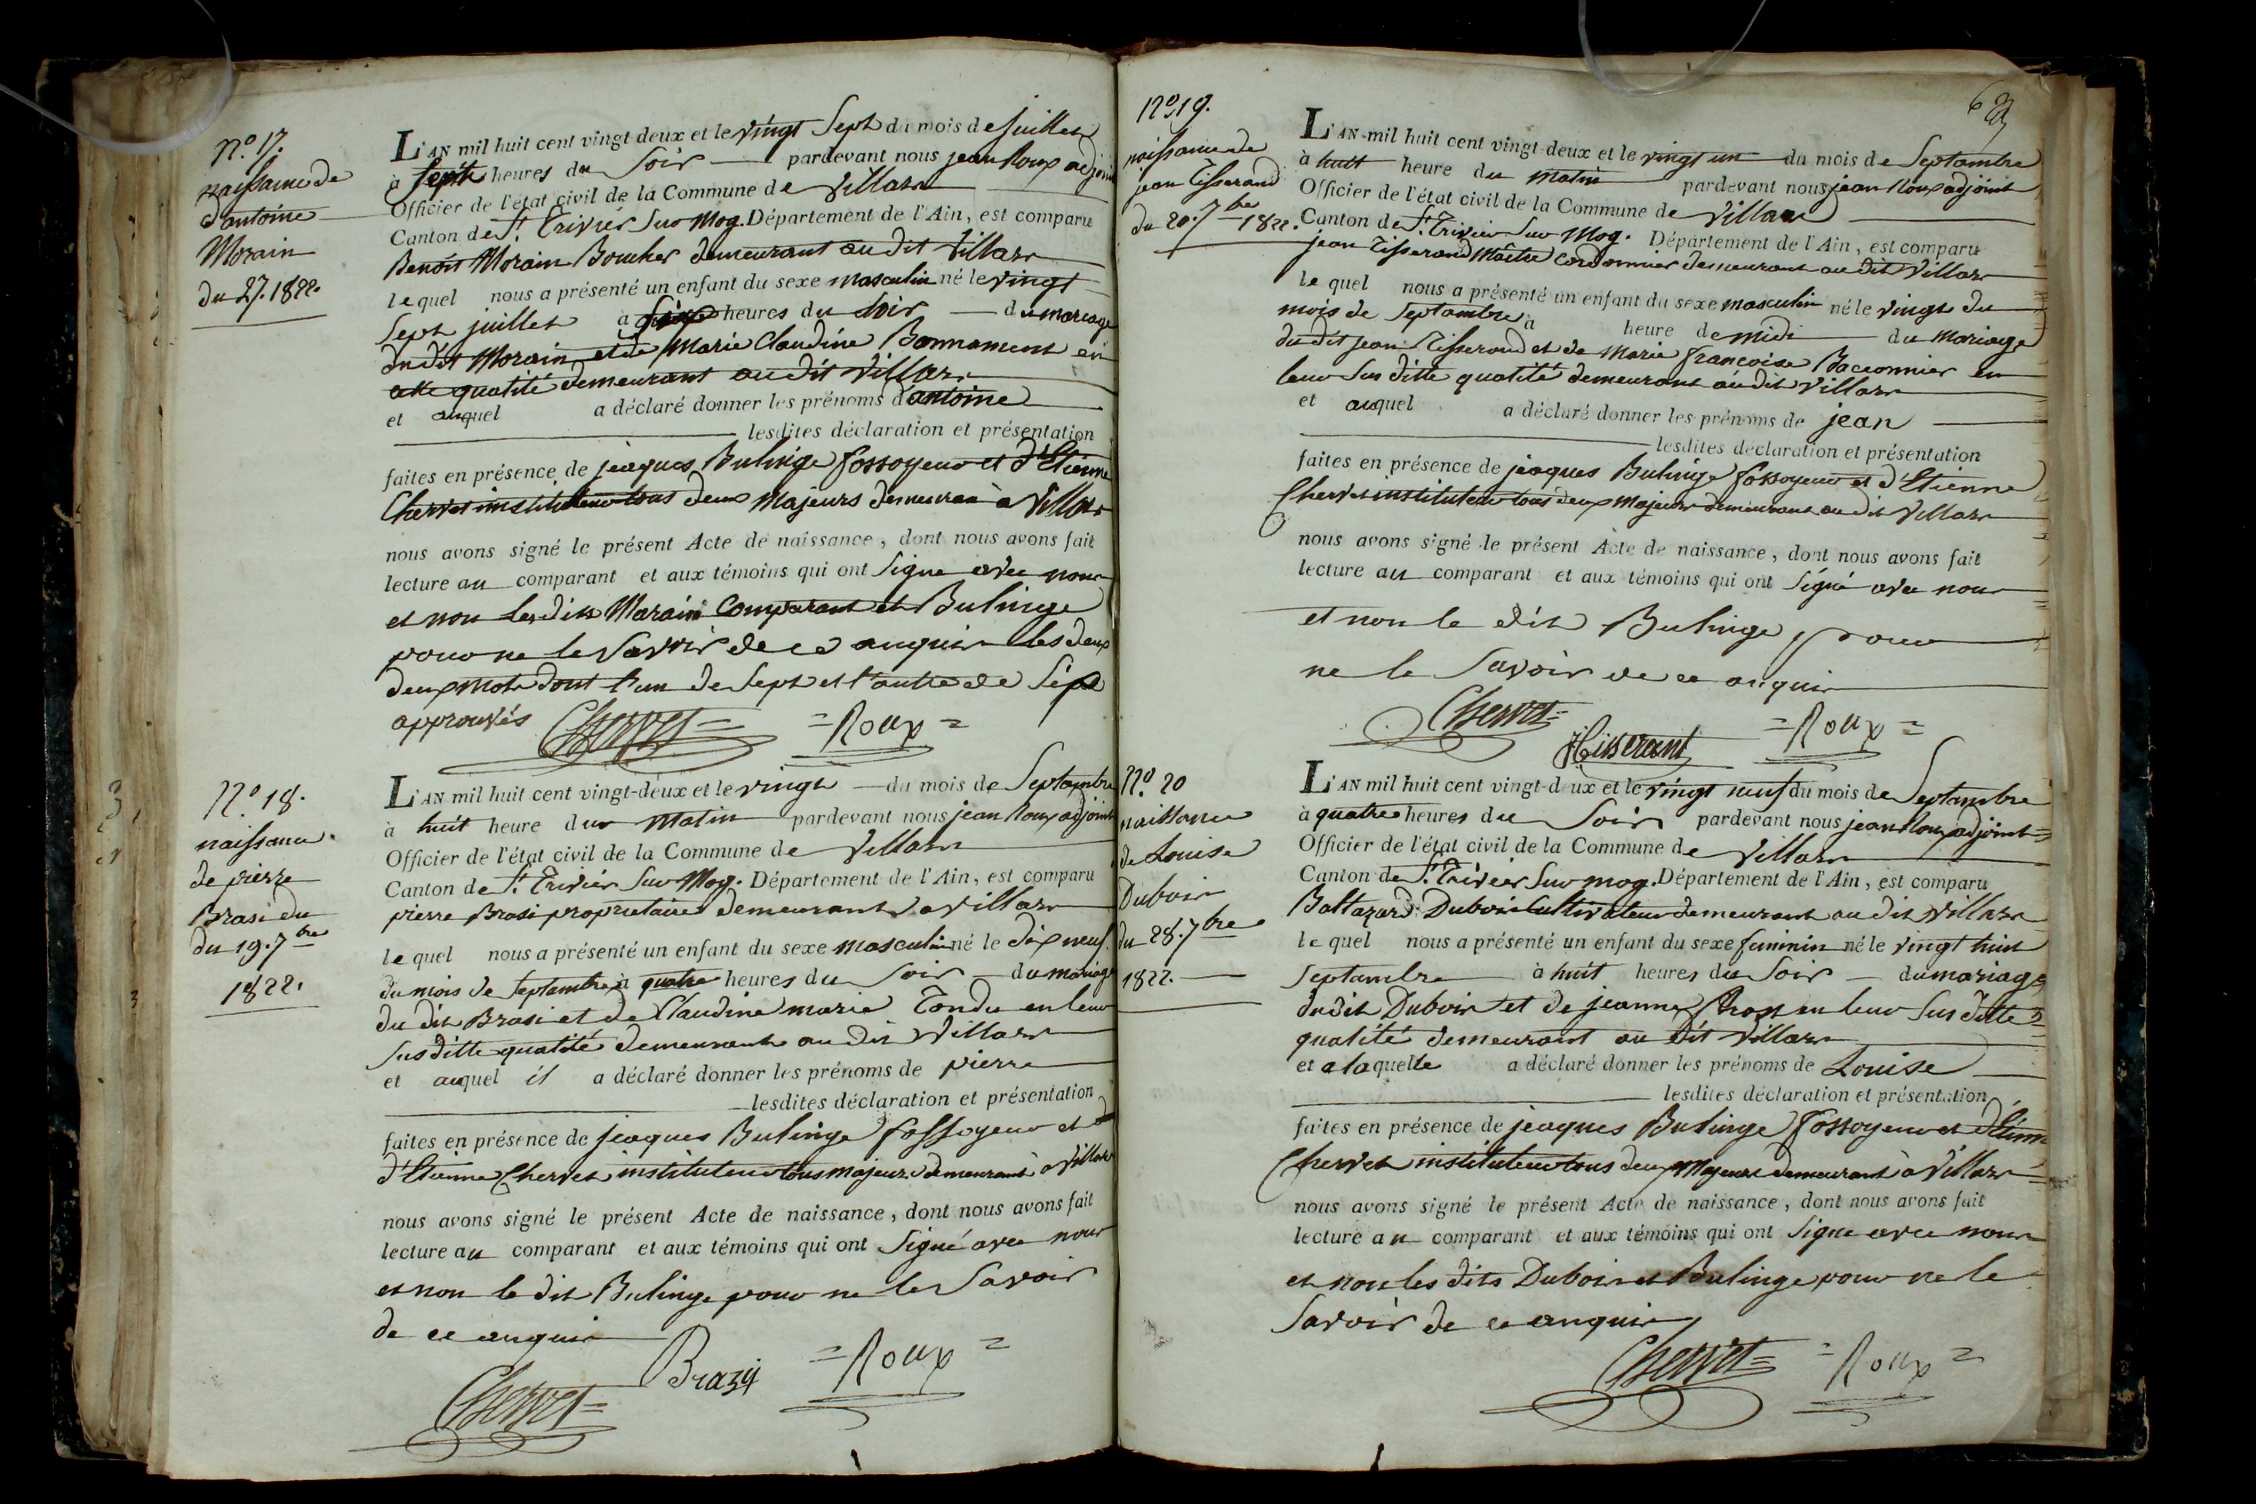 N.º 17.
naissance de
d'antoine
Morain
du 27. 1822.
L'AN mil huit cent vingt-deux et le vingt Sept du mois de juillet
à Sept heures du Soir pardevant nous jean Roux adjoint
Officier de l'état civil de la Commune de Villars
Canton de St. Trivier Sur Mog. Département de l'Ain, est comparu
Benoit Morain Boucher demeurant au dit Villars
le quel nous a présenté un enfant du sexe masculin né le vingt
Sept juillet à heures du Soir du mariage
du dit Morain et de Marie Claudine Bonnament en
cette qualité demeurant au dit Villars
et auquel a déclaré donner les prénoms d'antoine
lesdites déclaration et présentation
faites en présence de jacques Bulinge fossoyeur et d'Etienne
Chervet instituteur tous deux Majeurs demeuran à Villars
nous avons signé le présent Acte de naissance, dont nous avons fait
lecture au comparant et aux témoins qui ont Signe avec nous
et non les dits Morain Comparant et Bulinge
pour ne le Savoir de ce anquis les deux
deux mots dont l'un de Sept et l'autre de Sipt
approuvés Chervet = = Roux =
N.º 18.
naissance
de pierre
Brasi du
du 19. 7bre
1822.
L'AN mil huit cent vingt-deux et le vingt du mois de Septembre
à huit heure du Matin pardevant nous jean Roux adjoint
Officier de l'état civil de la Commune de Villars
Canton de St. Trivier Sur Mog. Département de l'Ain, est comparu
pierre Brasi proprietaire demeurant a Villars
le quel nous a présenté un enfant du sexe masculin né le dix neuf
du mois de Septambre à quatre heures du Soir du mariage
du dit Brasi et de Claudine marie Tondu en leur
Sus ditte qualité demeurant au dit Villars
et auquel il a déclaré donner les prénoms de pierre
lesdites déclaration et présentation
faites en présence de jacques Bulinge fossoyeur et
d'Etienne Chervet instituteur tous majeurs demeurant à Villars
nous avons signé le présent Acte de naissance, dont nous avons fait
lecture au comparant et aux témoins qui ont Signé avec nous
et non le dit Bulinge pour ne le Savoir
de ce anquis
Chervet = Brazy = Roux =
Nº 19.
naissance de
jean Tisserand
du 20. 7bre 1822.
L'AN mil huit cent vingt-deux et le vingt un du mois de Septambre
à huit heure du Matin pardevant nous jean Roux adjoint
Officier de l'état civil de la Commune de Villars
Canton de St. Trivier Sur Mog. Département de l'Ain, est comparu
jean Tisserand Maître Cordonnier demeurant au dit Villars
le quel nous a présenté un enfant du sexe masculin né le vingt du
mois de Septambre à heure de midi du Mariage
du dit jean Tisserand et de Marie francoise Baconnier en
leur Sus ditte qualité demeurant au dit Villars
et auquel a déclaré donner les prénoms de jean
lesdites déclaration et présentation
faites en présence de jacques Bulinge fossoyeur et d'Etienne
Chervet instituteur tous deux Majeurs demeurant au dit Villars
nous avons signé le présent Acte de naissance, dont nous avons fait
lecture au comparant et aux témoins qui ont Signé avec nous
et non le dit Bulinge pour
ne le Savoir de ce anquis
Chervet = JTisserant = Roux =
Nº. 20
naissance
de Louise
Dubois
du 28. 7bre
1822.
L'AN mil huit cent vingt-deux et le vingt neuf du mois de Septambre
à quatre heures du Soir pardevant nous jean Roux adjoint
Officier de l'état civil de la Commune de Villars
Canton de St. Trivier Sur mog. Département de l'Ain, est comparu
Baltazard Dubois Cultivateur demeurant au dit Villars
le quel nous a présenté un enfant du sexe feminin né le vingt huit
Septambre à huit heures du Soir du mariage
du dit Dubois et de jeanne en leur Sus ditte
qualité demeurant au dit Villars
et a laquelle a déclaré donner les prénoms de Louise
lesdites déclaration et présentation
faites en présence de jacques Bulinge fossoyeur et d'Etienne
Chervet instituteur tous deux Majeurs demeurant à Villars
nous avons signé le présent Acte de naissance, dont nous avons fait
lecture au comparant et aux témoins qui ont Signe avec nous
et non les dits Dubois et Bulinge pour ne le
Savoir de ce anquis
Chervet = = Roux =